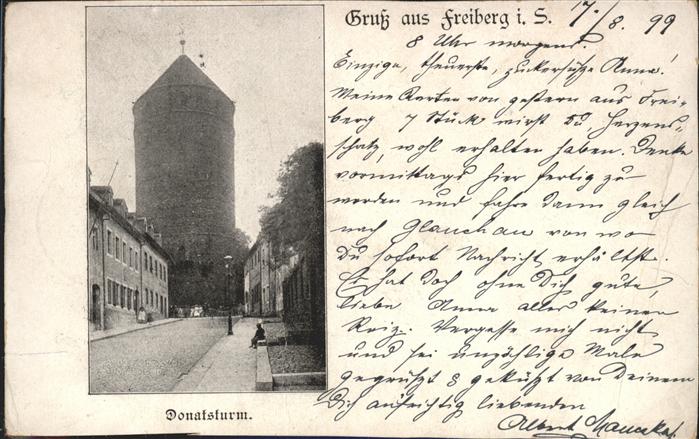 Gruß aus Freiberg i. S. 17./8. 99
8 Uhr morgens.
Einzige, theuerste, zuckersüße Anna!
Meine Karten von gestern aus Frei-
berg 7 Stück wirst Du Herzens-
schatz, wohl erhalten haben. Denke
vormittags hier fertig zu
werden und fahre dann gleich
nach Glauchau von wo
Du sofort Nachricht erhältst.
Es hat doch ohne Dich gute,
liebe Anna alles keinen
Reiz. Vergesse mich nicht
und sei unzählige Male
gegrüßt & geküßt von Deinem
Dich aufrichtig liebenden
Albert
Donatsturm.